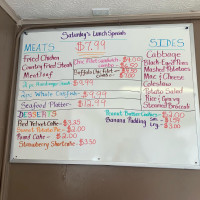 Saturday's Lunch Specials
MEATS $7.99
Fried Chicken
Country Fried Steak
Meatloaf
Chx. Filet Sandwich $4.00
combo $6.50
Buffalo Chx. Filet $4.50
combo $8.50
2 pc. Hamburger Steak $9.99
2 pc. Whole Catfish $9.99
Seafood Platter $12.99
SIDES
Cabbage
Black-Eyed Peas
Mashed Potatoes
Mac & Cheese
Coleslaw
Potato Salad
Rice & Gravy
Steamed Broccoli
DESSERTS
Red Velvet Cake $3.25
Sweet Potato Pie $2.00
Pound Cake $2.00
Strawberry Shortcake $3.50
Peanut Butter Cookies $2.00
Banana Pudding sm $2.00
Lrg $3.00